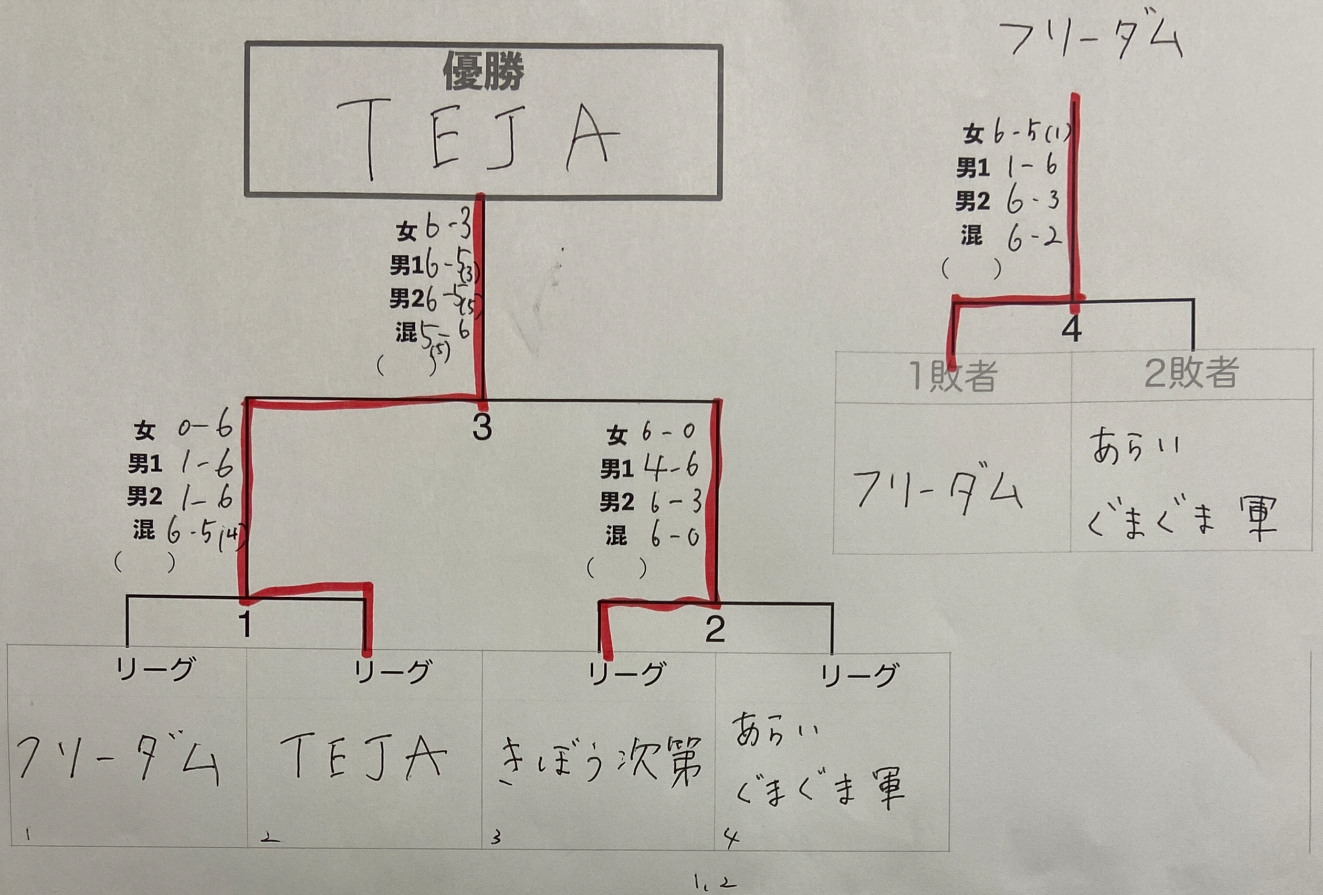 優勝
TEJA
女 6-3
男1 6-5(3)
男2 6-5(5)
混 5-6
(5)
( )
3
女 0-6
男1 1-6
男2 1-6
混 6-5(4)
( )
1
女 6-0
男1 4-6
男2 6-3
混 6-0
( )
2
リーグ リーグ リーグ リーグ
フリーダム
1
TEJA
2
きぼう次第
3
あらい
ぐまぐま軍
4
1,2
フリーダム
女 6-5(1)
男1 1-6
男2 6-3
混 6-2
( )
4
1敗者 2敗者
フリーダム
あらい
ぐまぐま軍